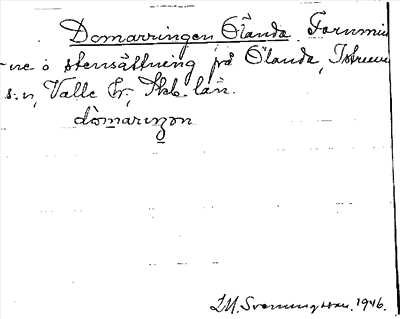 Domarringen Ölanda. Fornmin
-ne o stensättning på Ölanda, Istrums
s:n, Valle hd, Skb. län.
dòmariŋən
I.M. Svenningsson. 1946.